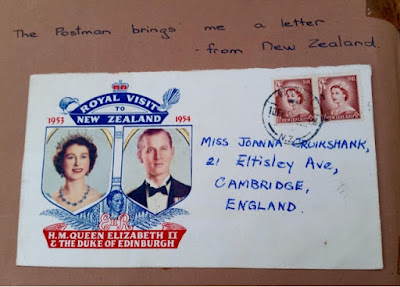 The Postman brings me a letter
from New Zealand.
ROYAL VISIT
TO
NEW ZEALAND
1953 1954
E II R
H.M. QUEEN ELIZABETH II
& THE DUKE OF EDINBURGH
MISS JOANNA CRUIKSHANK,
21 Eltisley Ave,
CAMBRIDGE,
ENGLAND.
N.Z.
NEW ZEALAND